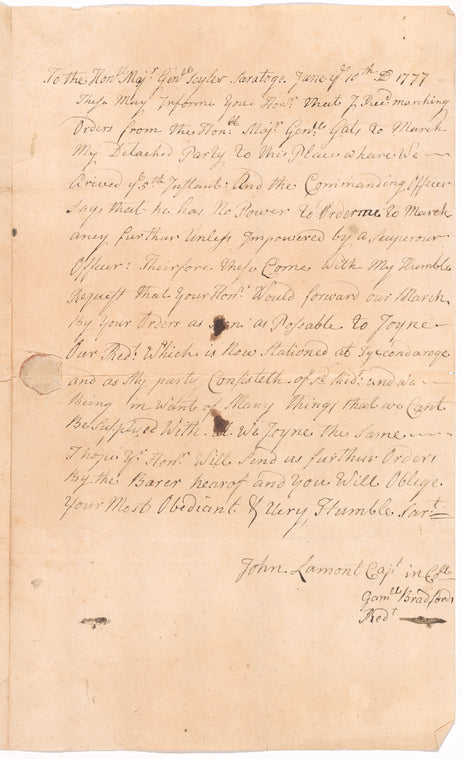 To the Hon.ble Maj.r Gen.ll Scyler Saratoge June ye 10th D 1777
These May Informe You Hon.r that I Rec.d marching
Orders from the Hon.ble Maj.r Gen.ll Gats to March
My Detached Party to this Place whare We
Arived ye 5th Instant: And the Commanding Officer
Says that he has No Power to Order me to March
aney furthur Unless Impowered by a Seuperour
Officer: Theirfore these Come with My Humble
Request that Your Hon.r Would forward our March
By Your Orders as as Possable to Joyne
Our Red.t Which is Now Stationed at Tyconderoge
and as My party Consisteth of
being in Want of Many Things that we Cant
Be Suplyed With We Joyne the Same
I hope Yr Hon.r Will Send us furthur Orders
By the Barer hearof and You Will Oblege
Your Most Obediant & Very Humble Sar.t
John Lamont Cap.t in Coll
Gam.ll Bradfords
Red.t